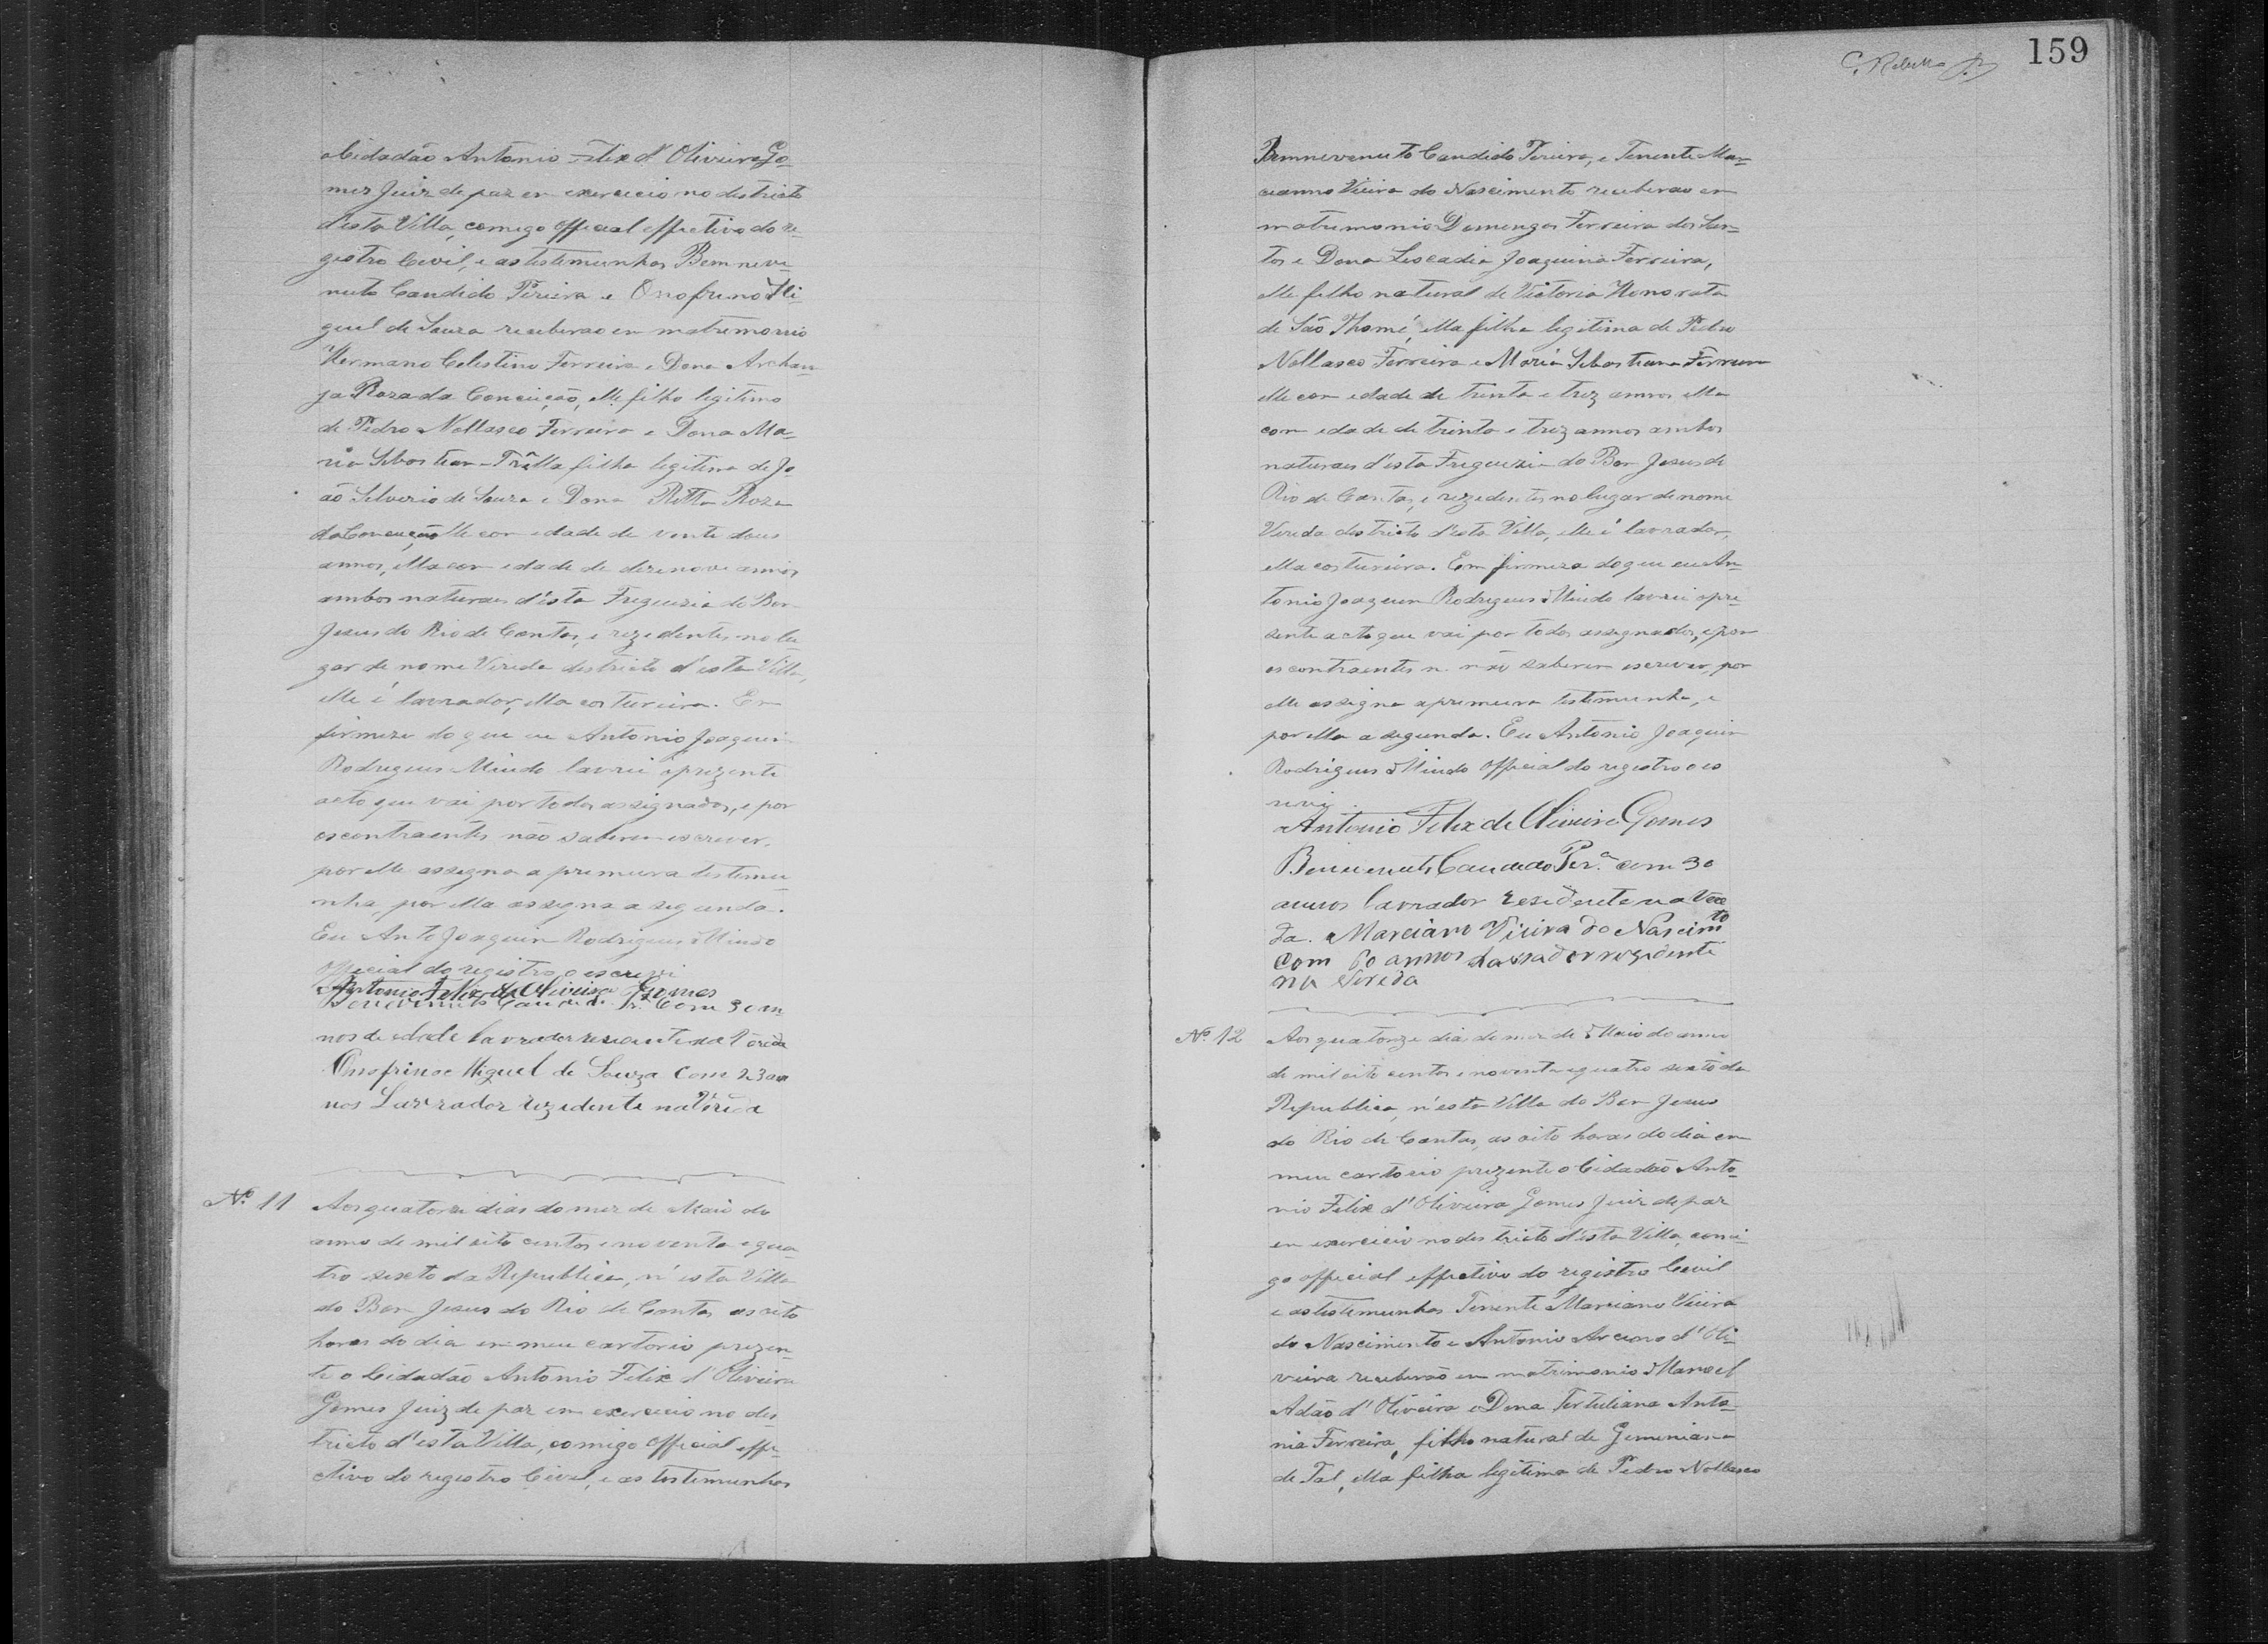 o Cidadão Antonio Felix d'Oliveira Go-
mes Juiz de paz em exercicio no districto
d'esta Villa, comigo official effectivo do re-
gistro Civil, e as testemunhas Bemneve-
nuto Candido Pereira e Onofrino Mi-
guel de Souza receberao em matrimonio
Hermano Celestino Ferreira e Dona Archan-
ja Roza da Conceição, elle filho legitimo
de Pedro Nollasco Ferreira e Dona Ma-
ria Sebastiana Frª ella filha legitima de Jo-
ão Silverio de Souza e Dona Ritta Roza
da Conceição, elle com edade de vente dous
annos, ella com edade de dezenove annos
ambos naturaes d'esta Freguezia do Bom
Jesus do Rio de Contas, e rezedentes no lu-
gar de nome Vereda districto d'esta Villa,
elle é lavrador, ella costureira. Em
firmeza do que eu Antonio Joaquim
Rodrigues Mindo lavrei o prezente
acto que vai por todos assignados, e por
os contraentes não saberem escrever,
por elle assigna a primeira testemu-
nha, por ella assigna a segunda.
Eu Antº Joaquim Rodrigues Mindo
official do registro o escrevi
Antonio Felix de Oliveira Gomes
Benevenuto Candido Prª Com 30 an-
nos de edade lavrador rezidente na Vereda
Onofrino Miguel de Souza Com 23 an
nos Lavrador rezidente na Vereda
Nº 11 Aos quatorze dias do mez de Maio do
anno de mil oito centos e noventa e qua-
tro sexto da Republica, n'esta Villa
do Bom Jesus do Rio de Contas as oito
horas do dia em meu cartorio prezen-
te o Cidadão Antonio Felix d'Oliveira
Gomes Juiz de paz em exercicio no dis-
tricto d'esta Villa, comigo official effe-
ctivo do registro Civel, e as testemunhas
C. Rebello
159
Bemnevenuto Candido Pereira, e Tenente Mar-
cianno Vieira do Nascimento receberao em
matrimonio Domingos Ferreira dos San-
tos e Dona Leocadia Joaquina Ferreira,
elle filho natural de Victoria Honorata
de São Thomé, ella filha legitima de Pedro
Nollasco Ferreira e Maria Sebastiana Ferreira
elle com edade de trinta e trez annos ella
com edade de trinta e trez annos ambos
naturaes d'esta Freguezia do Bom Jesus do
Rio de Contas, e rezedentes no lugar de nome
Vereda districto d'esta Villa, elle é lavrador,
ella costureira. Em firmeza do que eu An-
tonio Joaquim Rodrigues Mindo lavrei o pre-
zente acto que vai por todos assignados, e por
os contraentes n. não saberem escrever, por
elle assigna a primeira testemunha, e
por ella a segunda. Eu Antonio Joaquim
Rodrigues Mindo official do registro o es
crevi.
Antonio Felix de Oliveira Gomes
Benevenuto Candido Perª com 30
annos lavrador residente na Vere
da. Marciano Vieira do Nascimto
com 60 annos lavrador rezidente
na Vereda
Nº 12 Aos quatorze dias do mez de Maio do anno
de mil oito centos e noventa e quatro sexto da
Republica, n'esta Villa do Bom Jesus
do Rio de Contas, as oito horas do dia em
meu cartorio prezente o Cidadão Anto-
nio Felix d'Oliveira Gomes Juiz de paz
em exercicio no districto d'esta Villa, comi-
go official effectivo do registro Cevil
e as testemunhas Tenente Marciano Vieira
do Nascimento e Antonio d'Oli-
veira receberão em matrimonio Manoel
Adão d'Oliveira e Dona Tertuliana Anto-
nia Ferreira, filho natural de Geminiana
de Tal, ella filha legitima de Pedro Nollasco